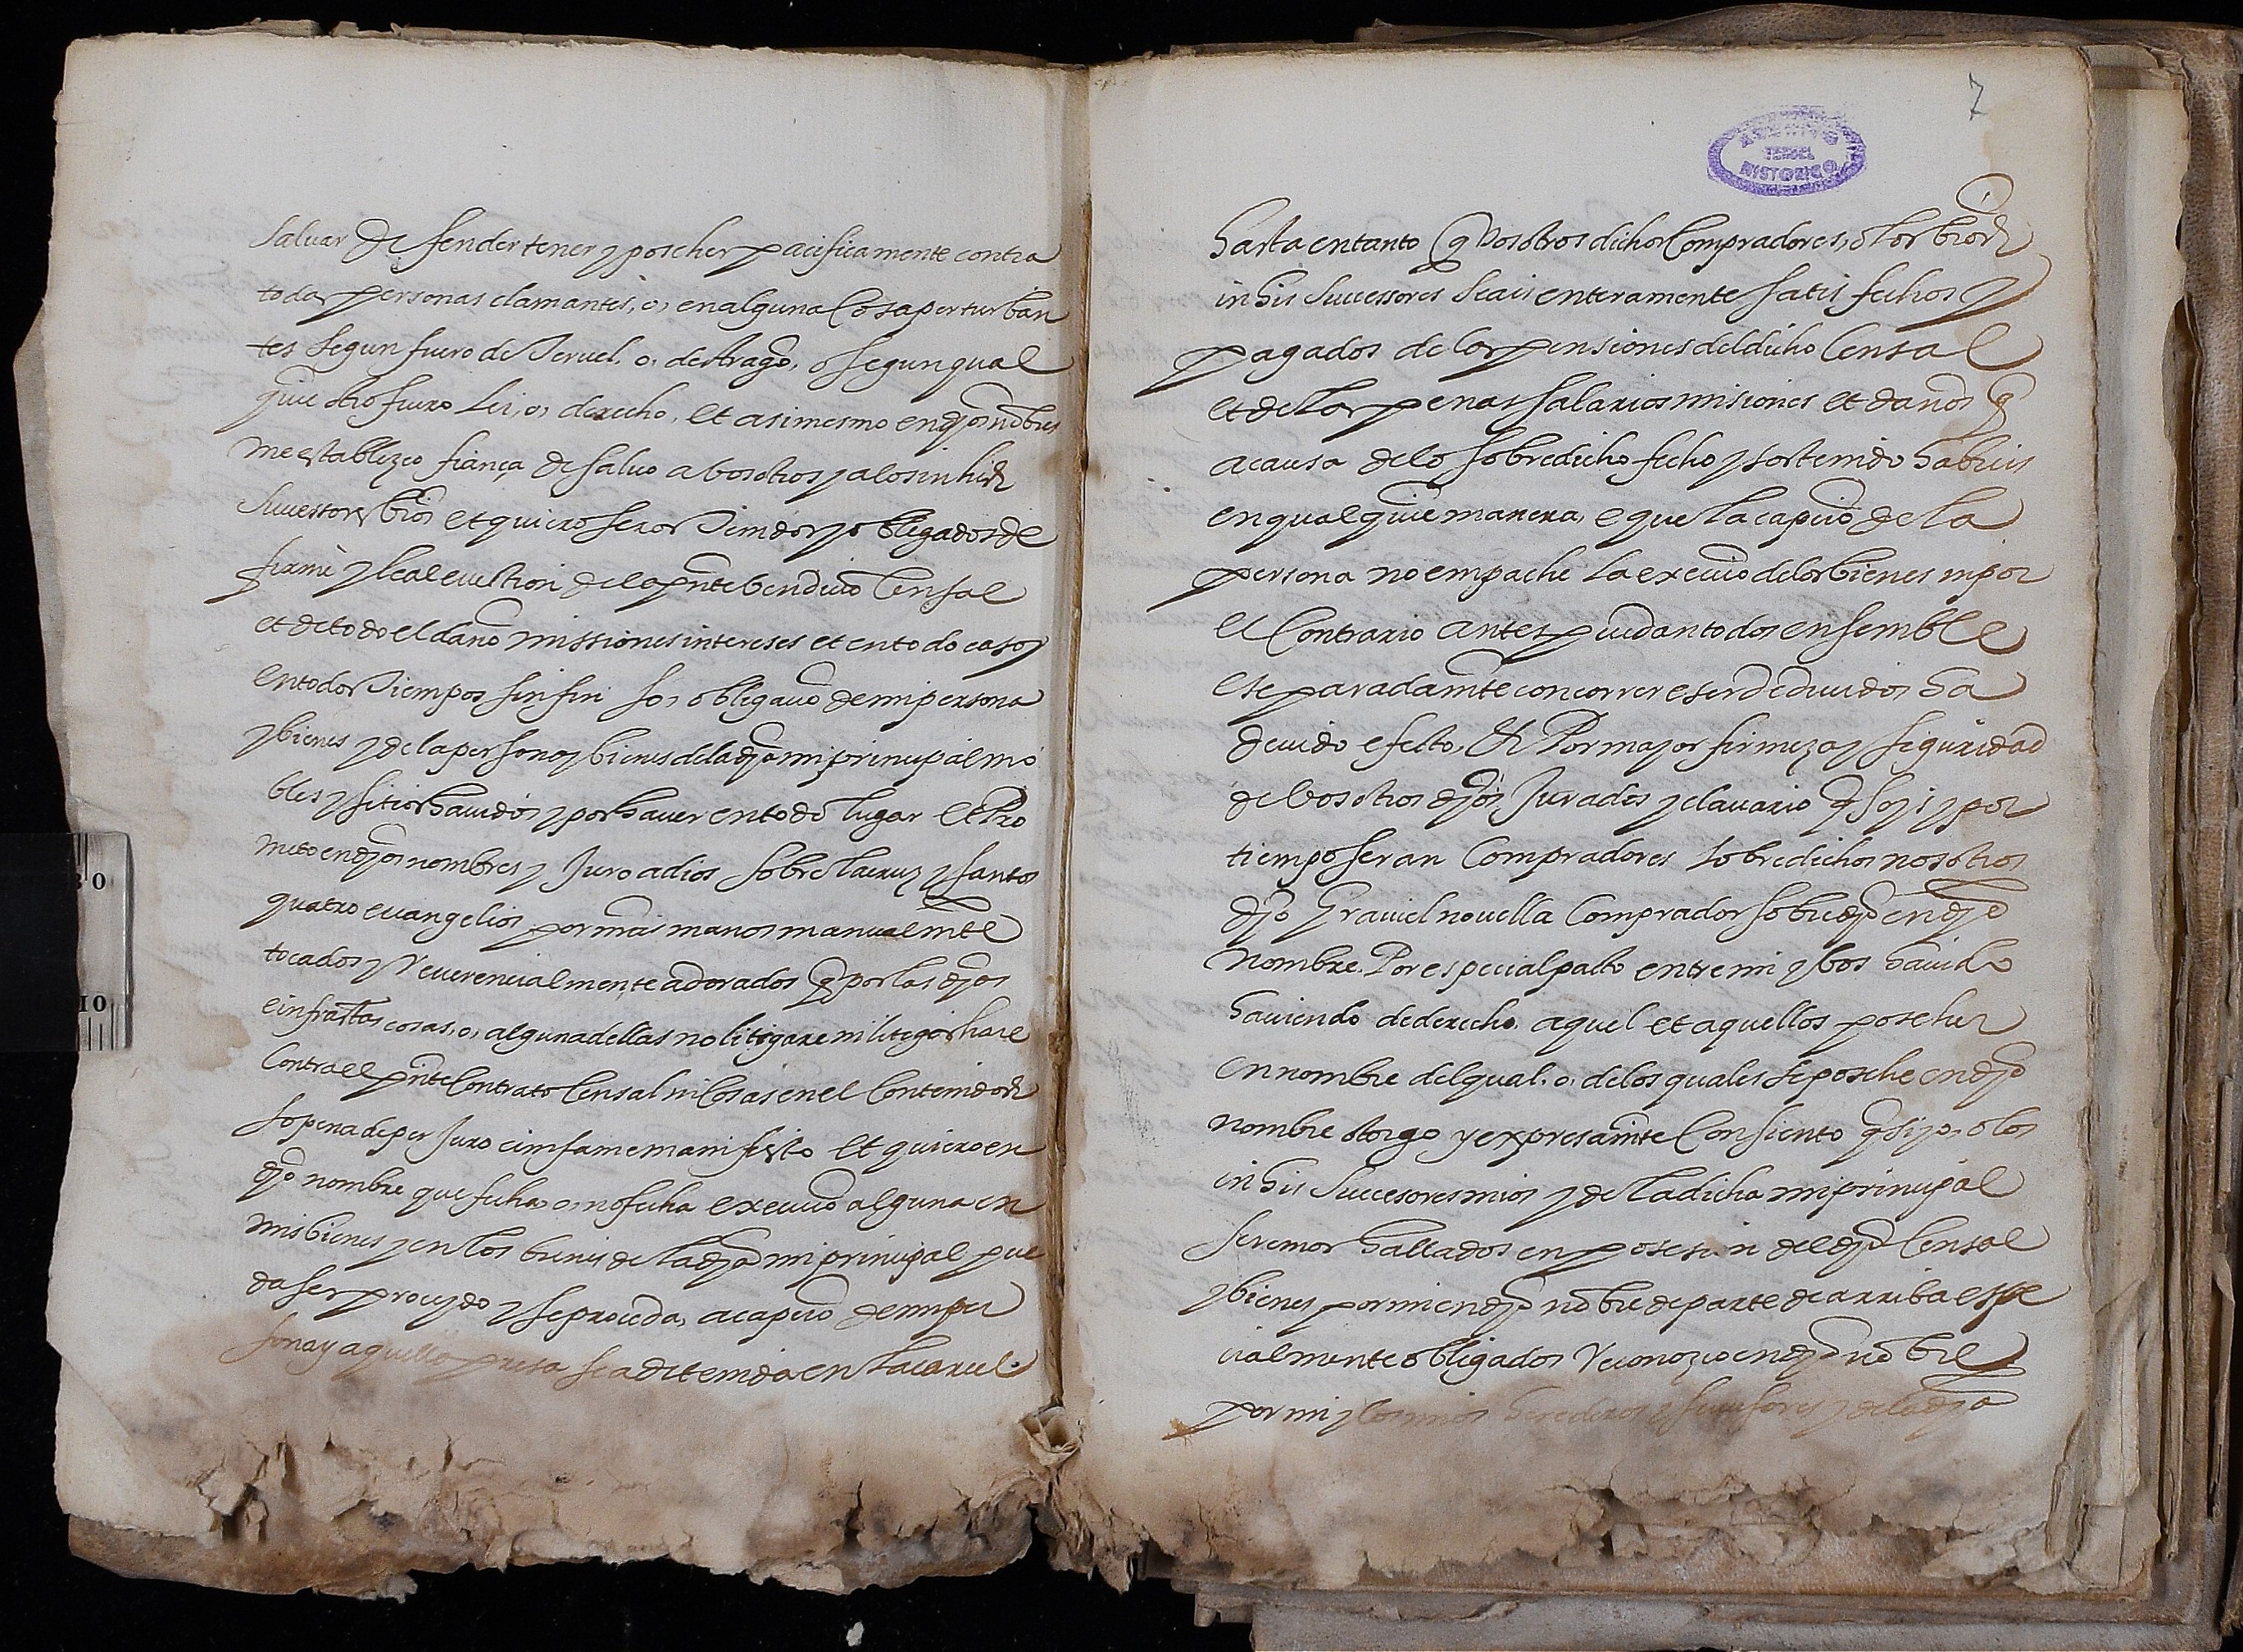 saluar defender tener y poseher pacificamente contra
todas personas clamantes, o, en alguna cosa perturban
tes segun fuero de Teruel, o, de Arago, o segun qual
quie otro fuero lei, o, derecho, et asimesmo en djos nobres
me establezco fiança de saluo a vosotros y alos in hids
sucessores bros et quiero seros tenidos y obligados de
firme y leal euiction dela pnte bendicio censal
et de todo el daño missiones intereses et en todo caso y
en todos tiempos sin fin so, obligacio de mi persona
y bienes y dela persona y bienes dela dja mi principal mo
bles y sitios hauidos y por hauer en todo lugar et Pro
meto en djos nombres y Juro a dios sobre la cruz y santos
quatro euangelios por mis manos manualmte
tocados y Reuerencialmente adorados q por las djas
e infrastas cosas, o, alguna dellas no litigare ni litigios hare
Contra el pnte Contrato Censal ni cosas en el Contenidas
so pena de per Juro e imfame manifiesto et quiero en
djo nombre que fecha, o, no fecha execucio alguna en
mis bienes y en los bienes de la dja mi principal pue
da ser proceydo y se proceda, a capcio de mi per
sona y aquella presa sea detenida en la carcel
7
ARCHIVO
TERUEL
HISTORICO
Hasta en tanto q Vosotros dichos Compradores, o los bros
in his Successores seais enteramente satis fechos y
pagados de las pensiones del dicho Censal
et de las penas salarios misiones et daños q
a causa de lo sobredicho fecho y sostenido habreis
en qualquie manera, e que la capcio de la
persona no empache la execucio de los bienes ni por
el Contrario antes puedan todos ensemble
e separadamte concorrer e ser deduzidos ha
deuido efecto, Et Por mayor firmeza y siguridad
de Vosotros djos Jurados y clauario q soys y por
tiempo seran Compradores sobredichos nosotros
djo Grauiel nouella Comprador sobredjo en djo
Nombre. Por especial pacto entre mi y bos hauido
hauiendo de derecho, aquel et aquellos poseher
en nombre del qual, o, de los quales se posehe en djo
nombre otorgo y expresamte Consiento q si yo, o los
in his Successores mios y de la dicha mi principal
seremos hallados en posesion del djo Censal
y bienes por mi en djo nobre de parte de arriba espe
cialmente obligados Reconozco en djo nobre
por mi y los mios herederos y sucesores y dela dja